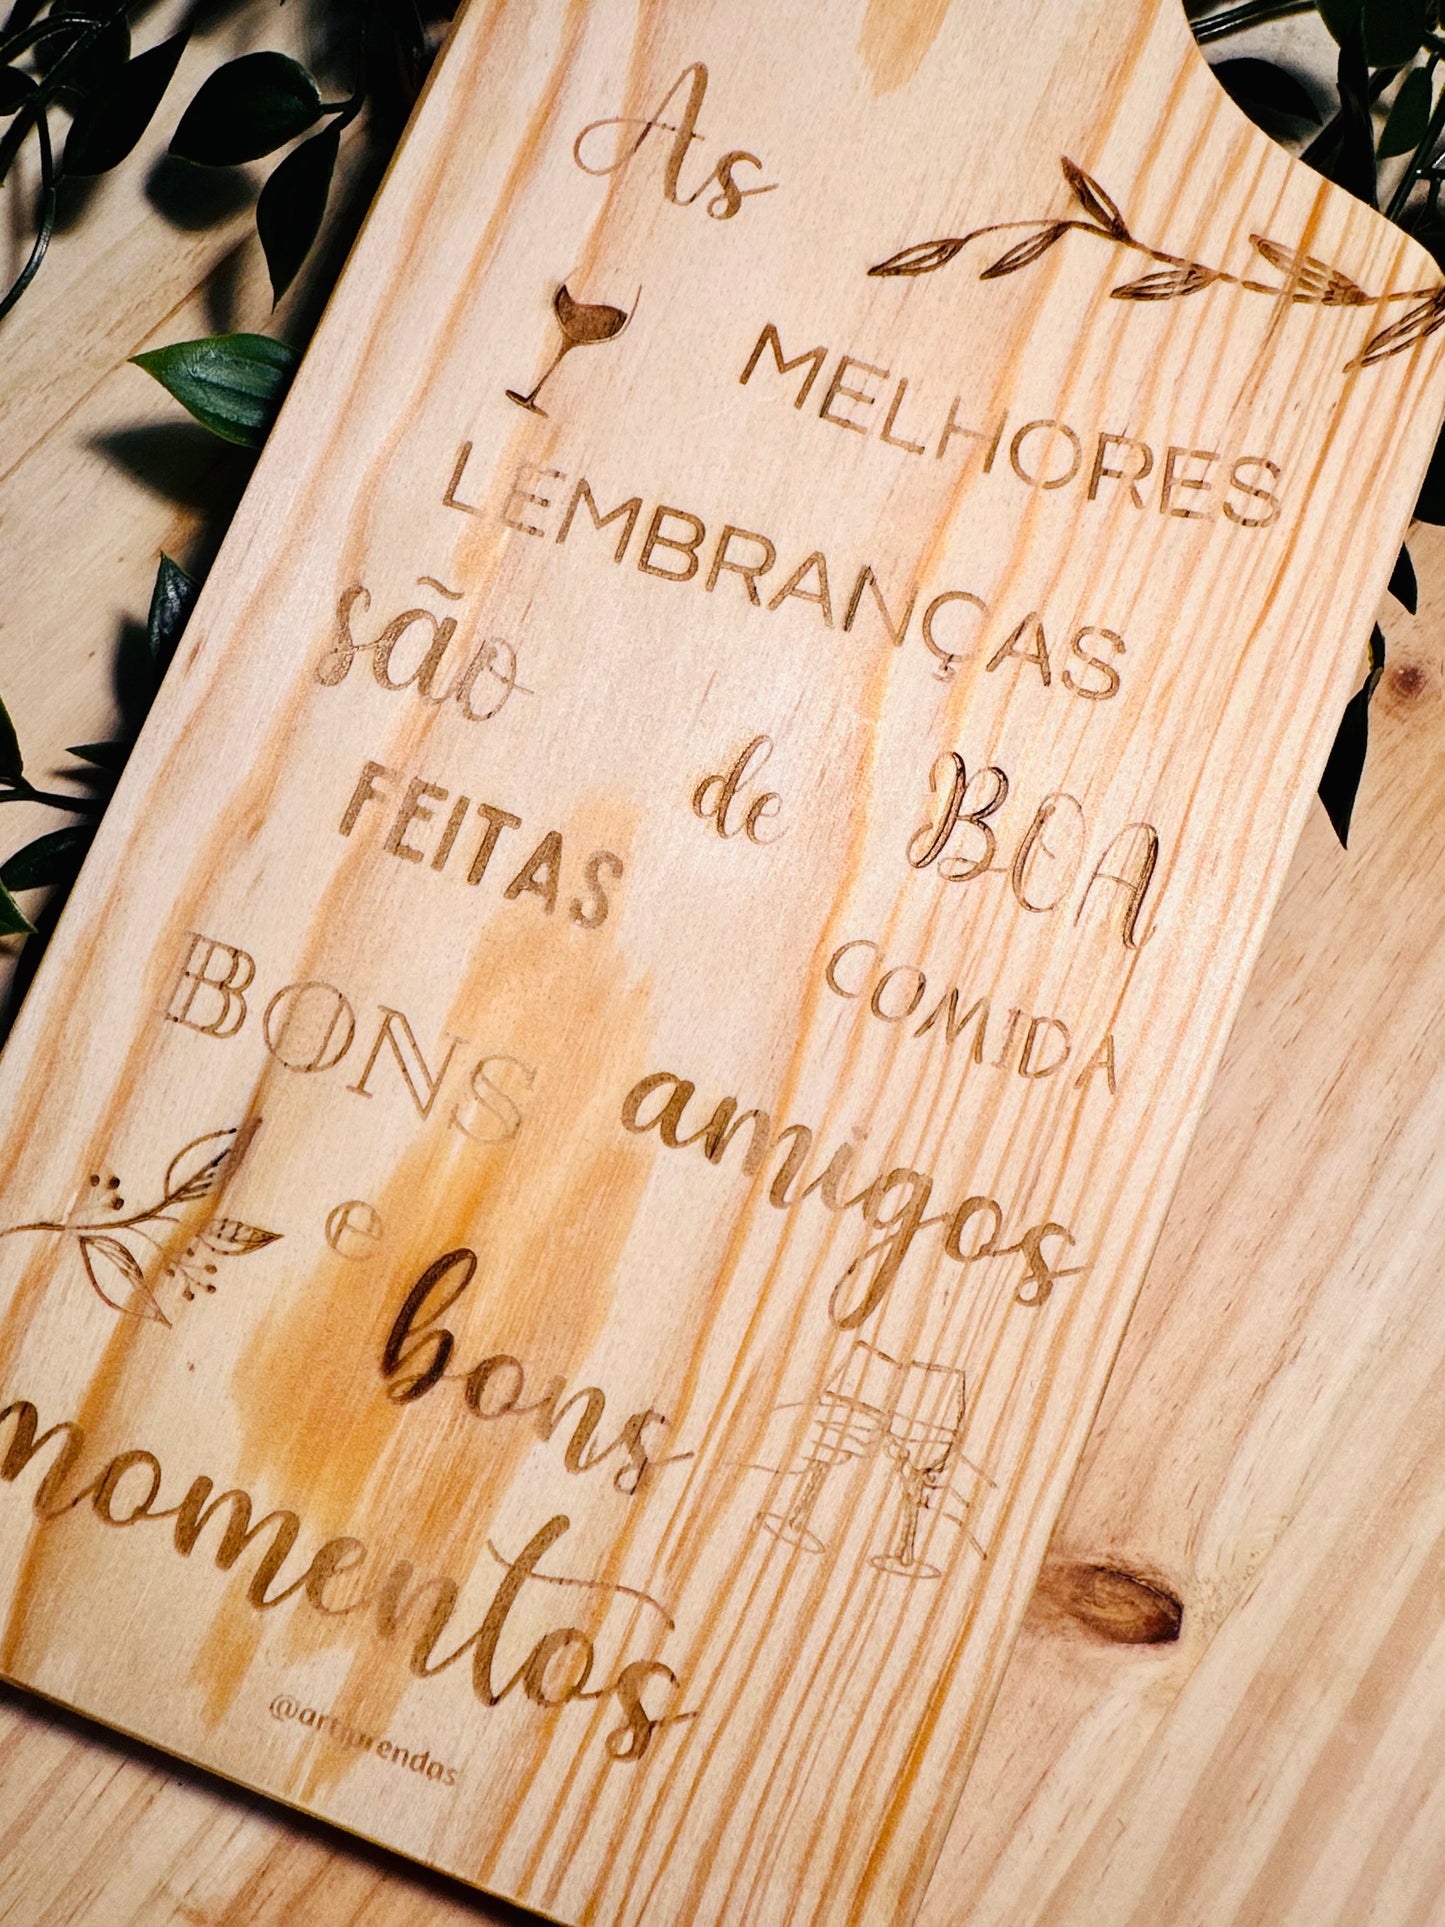 As
MELHORES
LEMBRANÇAS
são
FEITAS de BOA
COMIDA
BONS amigos
e bons
momentos
@artiprendas